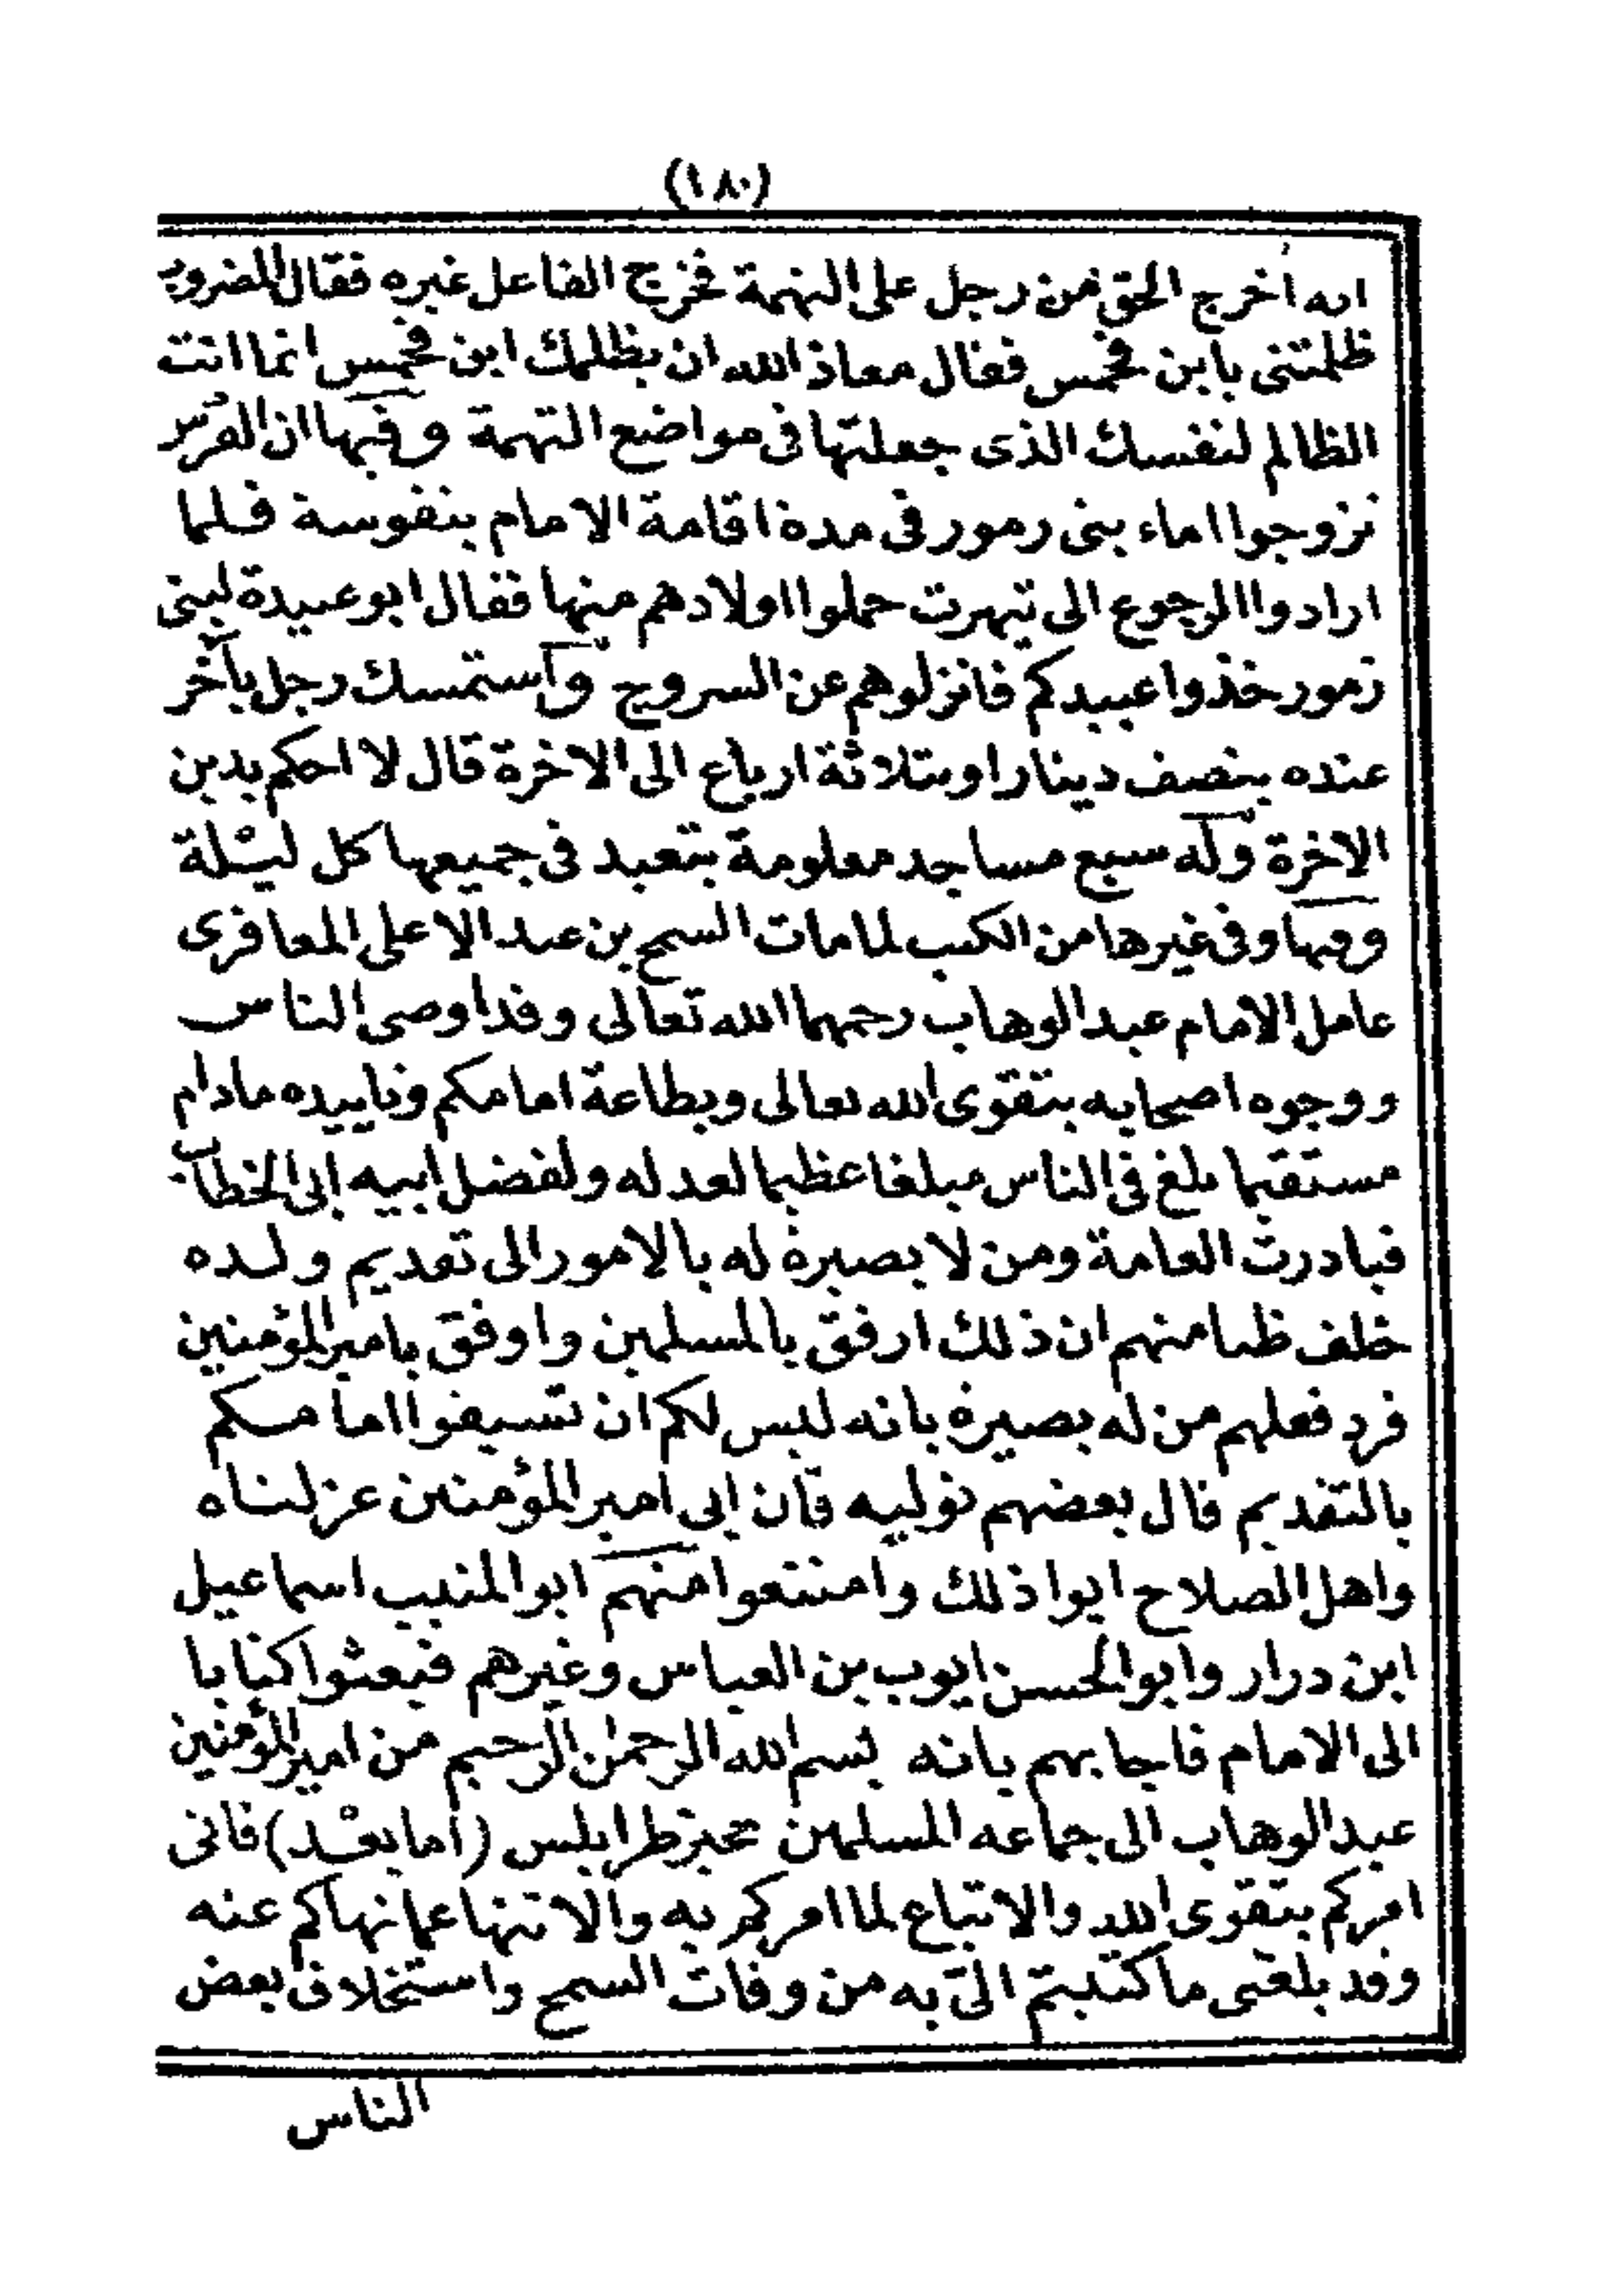 (١٨٠)
انه أخرج الحق من رجل على التهمة فخرج الفاعل غيره فقال المضروب
ظلمتنى يا ابن فحمس فقال معاذ الله ان يظلمك ابن فحمس انما انت
الظالم لنفسك الذى جعلتها فى مواضع التهمة وفيها ان الفرس
تزوجوا اماء بنى زمور فى مدة اقامة الامام بنفوسة فلما
ارادوا الرجوع الى تيهرت حملوا اولادهم منها فقال ابو عبيدة لبنى
زمور خذوا عبيدكم فانزلوهم عن السروج واستمسك رجل بآخر
عنده بنصف دينار او بثلاثة ارباع الى الاخرة قال لا احكم بدين
الاخرة وله سبع مساجد معلومة يتعبد فى جميعها كل ليلة
وفيها وفى غيرها من الكتب لما مات السمح بن عبد الاعلى المعافرى
عامل الامام عبد الوهاب رحمهما الله تعالى وقد اوصى الناس
ووجوه اصحابه بتقوى الله تعالى وبطاعة امامكم وتاييده مادام
مستقيما بلغ فى الناس مبلغا عظيما لعدله ولفضل ابيه ابى الخطاب
فبادرت العامة ومن لا بصيرة له بالامور الى تقديم ولده
خلف ظنا منهم ان ذلك ارفق بالمسلمين واوفق بامير المؤمنين
فرد فعلهم من له بصيرة بانه ليس لكم ان تسبقوا امامكم
بالتقديم قال بعضهم نوليه فان ابى امير المؤمنين عزلناه
واهل الصلاح ابوا ذلك وامتنعوا منهم ابو المنيب اسماعيل
ابن درار وابو الحسن ايوب بن العباس وغيرهم فبعثوا كتابا
الى الامام فاجابهم بانه بسم الله الرحمن الرحيم من امير المؤمنين
عبد الوهاب الى جماعه المسلمين بحيز طرابلس (أما بعد) فانى
امركم بتقوى الله والاتباع لما امركم به والانتها عما نهاكم عنه
وقد بلغنى ما كتبتم الىّ به من وفات السمح واستخلاف بعض
الناس